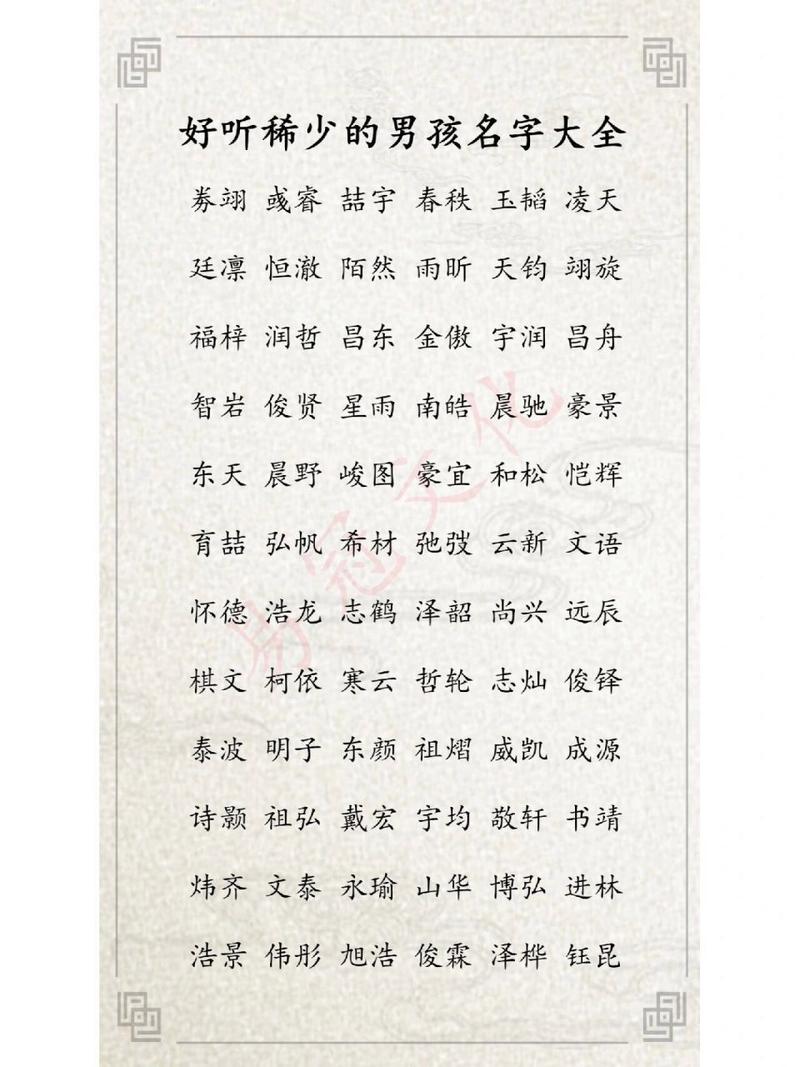 好听稀少的男孩名字大全
劵翊 彧睿 喆宇 春秩 玉韬 凌天
廷凛 恒澈 陌然 雨昕 天钧 翊旋
福梓 润哲 昌东 金傲 宇润 昌舟
智岩 俊贤 星雨 南皓 晨驰 豪景
东天 晨野 峻图 豪宜 和松 恺辉
育喆 弘帆 希材 弛弢 云新 文语
怀德 浩龙 志鹤 泽韶 尚兴 远辰
棋文 柯依 寒云 哲轮 志灿 俊铎
泰波 明子 东颜 祖熠 威凯 成源
诗颢 祖弘 戴宏 宇均 敬轩 书靖
炜齐 文泰 永瑜 山华 博弘 进林
浩景 伟彤 旭浩 俊霖 泽桦 钰昆
易冠文化